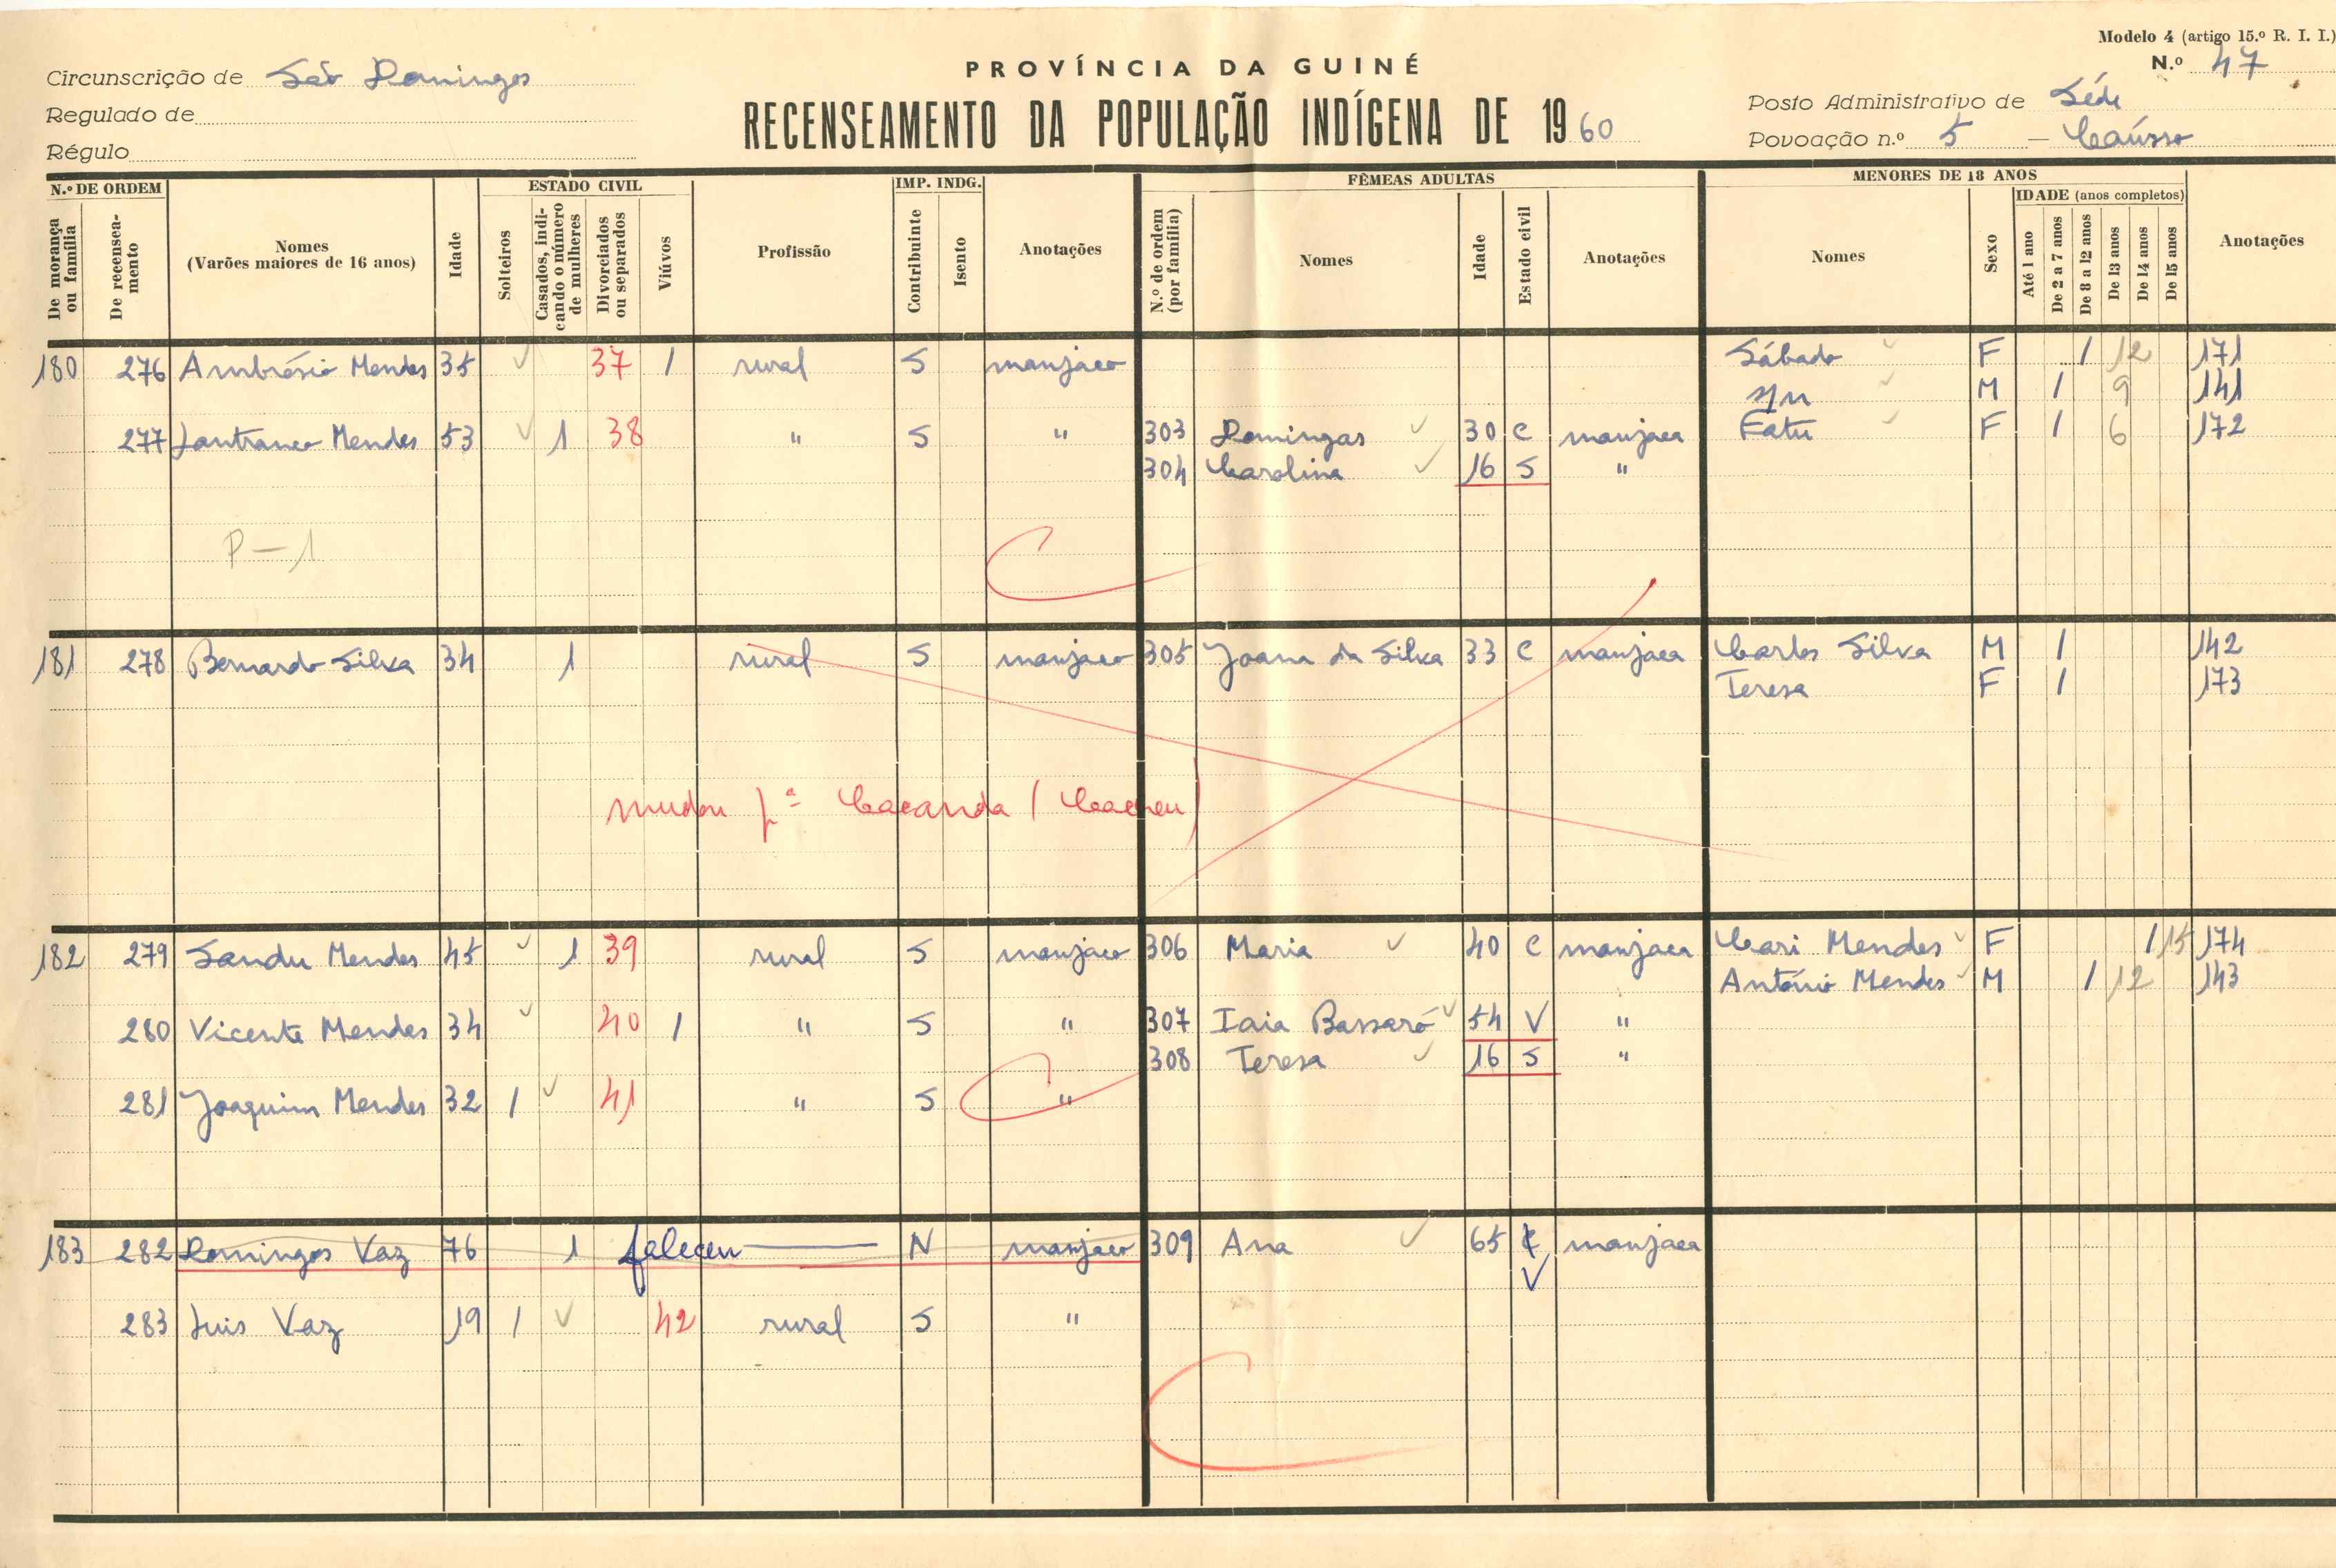 Modelo 4 (artigo 15.º R. I. I.)
N.º 47
Circunscrição de São Domingos
Regulado de
Régulo
PROVÍNCIA DA GUINÉ
RECENSEAMENTO DA POPULAÇÃO INDÍGENA DE 1960
Posto Administrativo de Séde
Povoação n.º 5 —
N.º DE ORDEM
De morança ou família
De recenseamento
Nomes
(Varões maiores de 16 anos)
Idade
ESTADO CIVIL
Solteiros
Casados, indicando o número de mulheres
Divorciados ou separados
Viúvos
Profissão
IMP. INDG.
Contribuinte
Isento
Anotações
FÊMEAS ADULTAS
N.º de ordem (por família)
Nomes
Idade
Estado civil
Anotações
MENORES DE 18 ANOS
Nomes
Sexo
IDADE (anos completos)
Até 1 ano
De 2 a 7 anos
De 8 a 12 anos
De 13 anos
De 14 anos
De 15 anos
Anotações
180 276 Ambrósio Mendes 35 37 1 rural S manjaco Sábado F 1 12 171
M 1 9 141
277 Mendes 53 1 38 " S " 303 Domingas 30 C manjaca Fatu F 1 6 172
304 Carolina 16 S "
P — 1
181 278 Bernardo Silva 34 1 rural S manjaco 305 Joana da Silva 33 C manjaca Carlos Silva M 1 142
Teresa F 1 173
mudou p.ª Cacanda (Cacheu)
182 279 Sandu Mendes 45 1 39 rural S manjaco 306 Maria 40 C manjaca Cari Mendes F 1 15 174
António Mendes M 1 12 143
280 Vicente Mendes 34 40 1 " S " 307 Iaia Bassaró 54 V "
308 Teresa 16 S "
281 Joaquim Mendes 32 1 41 " S "
183 282 Domingos Vaz 76 1 faleceu N manjaco 309 Ana 65 C manjaca
V
283 Luis Vaz 19 1 42 rural S "